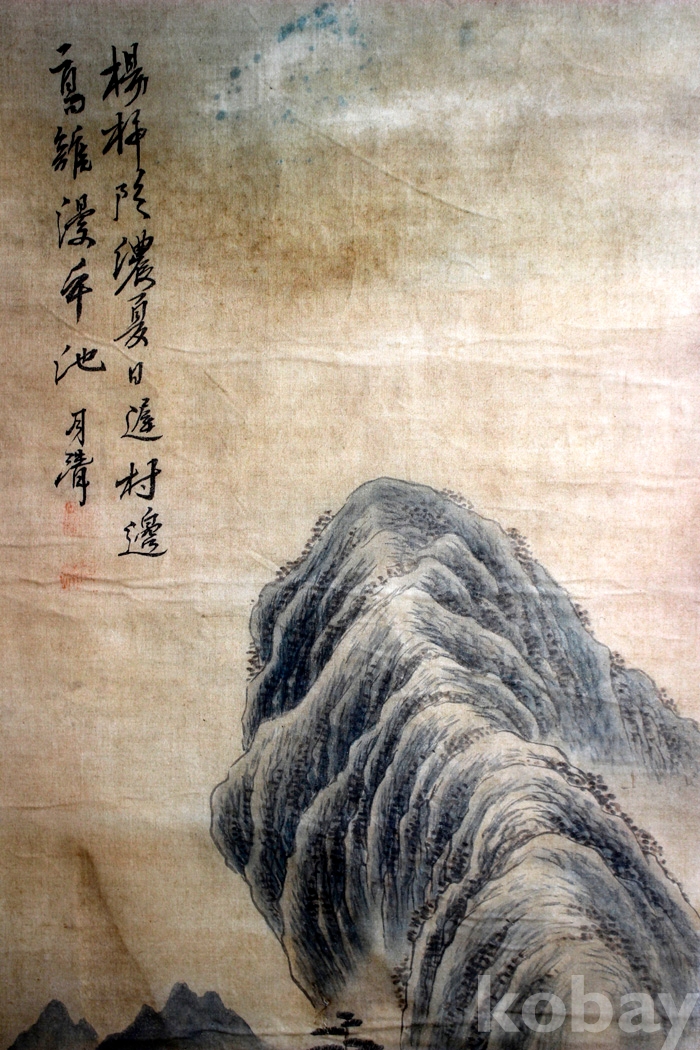 楊柳陰濃夏日遲村邊
高漫平池 月
kobay